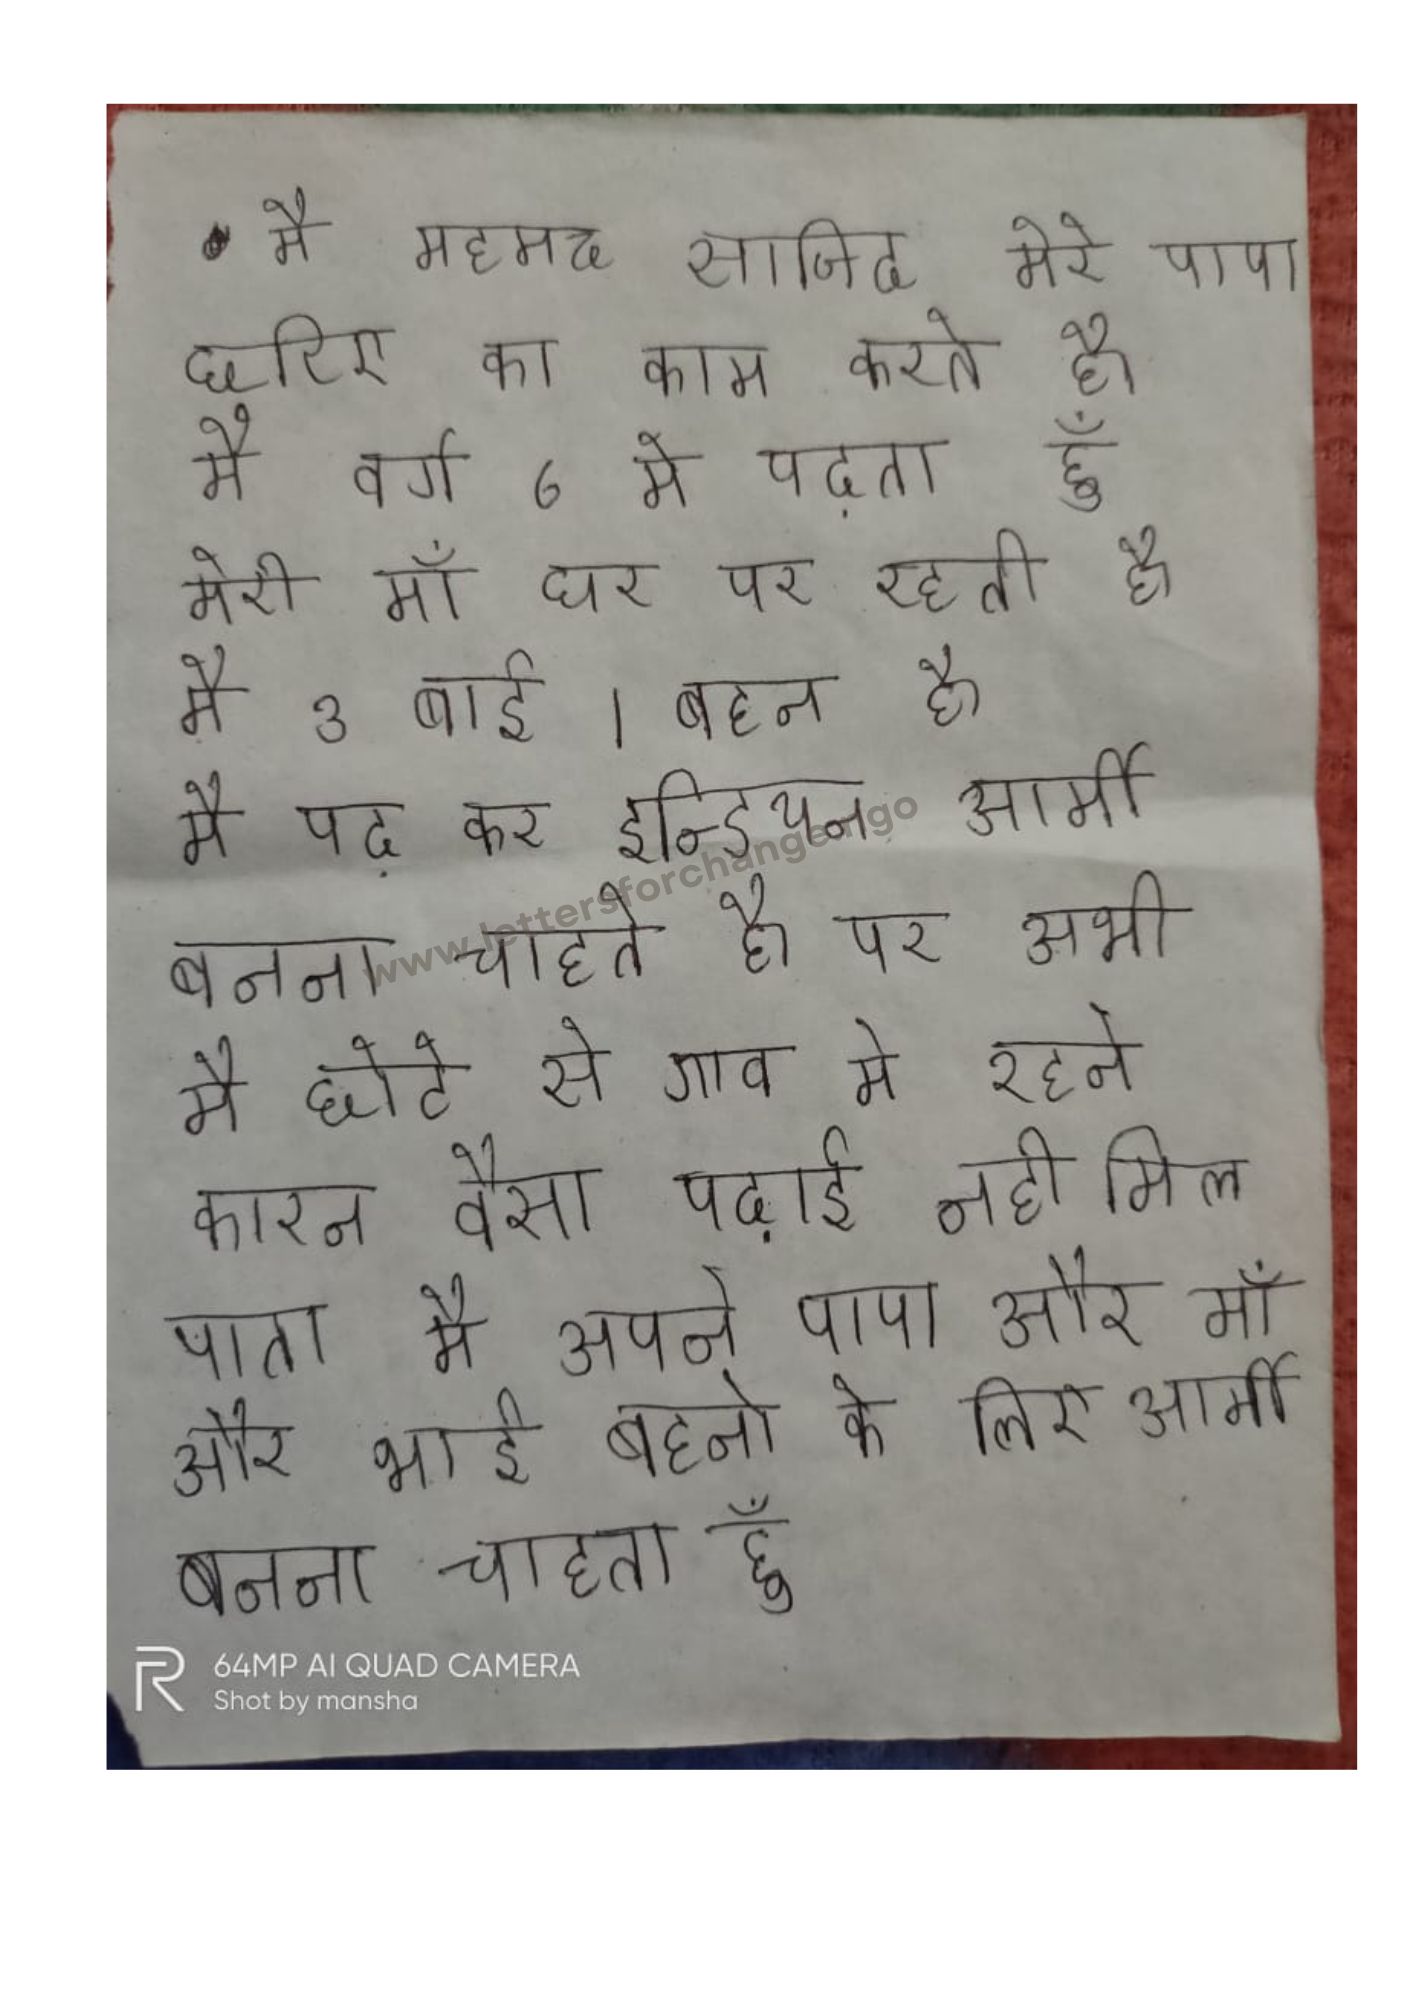 मै महमद साजिद मेरे पापा
छरिए का काम करते है
मै वर्ग 6 मे पढ़ता हुँ
मेरी माँ घर पर रहती है
मै 3 बाई 1 बहन है
मै पढ़ कर इन्डियन आर्मी
बनना चाहते है पर अभी
मै छोटे से गाव मे रहने
कारन वैसा पढ़ाई नही मिल
पाता मै अपने पापा और माँ
और भाई बहनो के लिए आर्मी
बनना चाहता हुँ
www.lettersforchange.ngo
64MP AI QUAD CAMERA
Shot by mansha